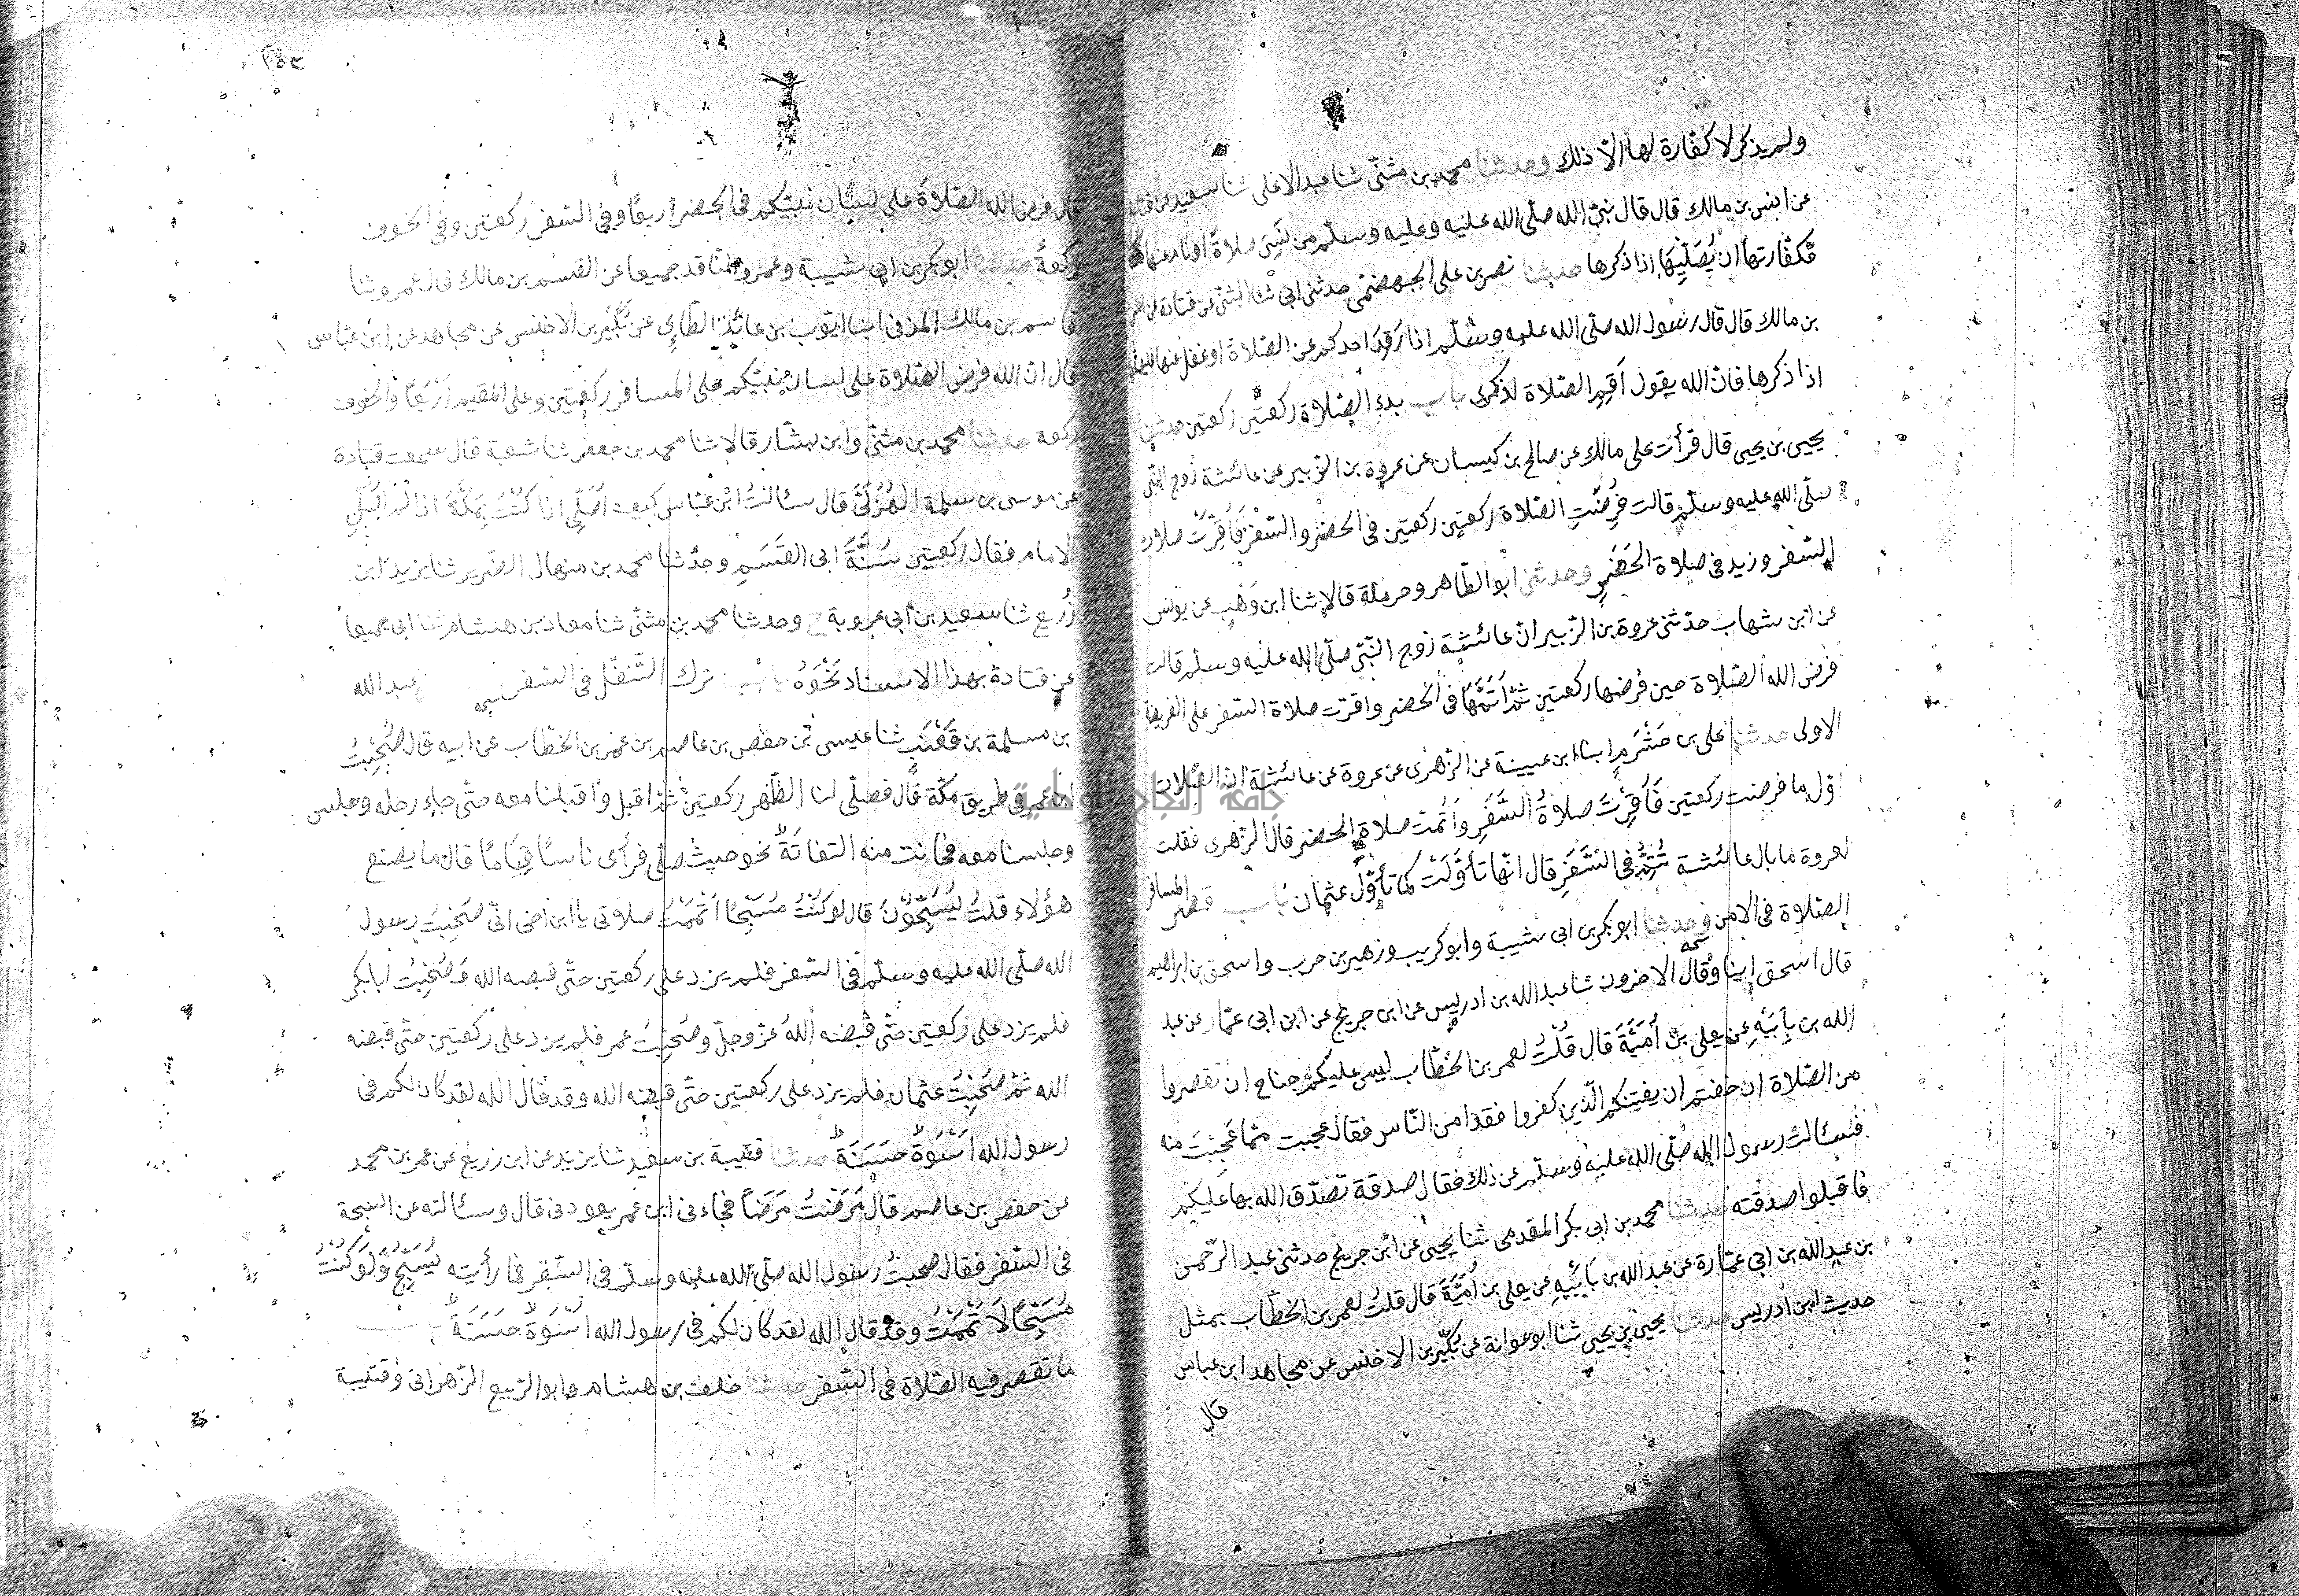 ولم يذكر لا كفارة لها الّا ذلك وحدثنا محمد بن مثنّى ثنا عبد الاعلى ثنا سعيد عن قتادة
عن انس بن مالك قال قال نبىّ الله صلّى الله عليه وعليه وسلّم من نَسِىَ صلاةً او نام عنها
فكفّارتها ان يُصَلّيَها اذا ذكرها حدثنا نصر بن على الجهضمّى حدثنى ابى ثنا المثنّى عن قتادة عن انس
بن مالك قال قال رسول الله صلّى الله عليه وسلّم اذا رَقَدَ احدكم عن الصّلاة او غفل عنها فليصلّها
اذا ذكرها فانّ الله يقول اَقِيمِ الصّلاة لذكرى باب بدء الصّلاة ركعتين ركعتين حدثنا
يحيى بن يحيى قال قرأت على مالك عن صالح بن كيسان عن عروة بن الزّبير عن عائشة زوج النبّى
صلّى الله عليه وسلّم قالت فُرِضَتِ الصّلاة ركعتين ركعتين فى الحضر والسّفر فَأُقِرَّتْ صلاة
السّفر وزيد فى صلاة الحَضَرِ وحدثنى ابو الطّاهر وحرملة قالا ثنا ابن وَهْبٍ عن يونس
عن ابن شهاب حدّثنى عروة بن الزّبير انّ عائشة زوج النّبّى صلّى الله عليه وسلّم قالت
فرض الله الصّلاة حين فرضها ركعتين ثمّ اَتَمَّهَا فى الحضر واقرّت صلاة السّفر على الفريضة
الاولى حدثنا على بن خَشْرَمٍ ابنا ابن عيينة عن الزّهرى عن عروة عن عائشة انّ الصّلات
اوّل ما فرضت ركعتين فَأُقِرَّتْ صلاةُ السَّفَرِ وأُتمّت صلاة الحضر قال الزّهرى فقلت
لعروة ما بال عائشة تُتِمُّ فى السَّفَرِ قال انّها تأوَّلَتْ كما تأوّل عثمان باب قصر المسافر
الصّلاة فى الامن وحدثنا ابو بكر بن ابى شيبة وابو كريب وزهير بن حرب واسحق بن ابراهيم
قال اسحق ابنا وقال الاخرون ثنا عبد الله بن ادريس عن ابن جريج عن ابن ابى عمّار عن عبد
الله بن بابَيْهِ عن يعلى بن أُمَيَّةَ قال قُلْتُ لعمر بن الخطّاب ليس عليكم جناح ان تقصروا
من الصّلاة ان خفتم ان يفتنكم الّذين كفروا فقد امن النّاس فقال عجبت ممّا عَجِبْتَ منه
فسئالت رسول الله صلّى الله عليه وسلّم عن ذلك فقال صدقة تصدّق الله بها عَليكم
فاقبلوا صدقته حدثنا محمد بن ابى بكر المقدمى ثنا يحيى عن ابن جريج حدثنى عبد الرّحمن
بن عبد الله بن ابى عمّارة عن عبد الله بن بَابَيْهِ عن يعلى بن أُمَيَّةَ قال قلتُ لعمر بن الخطّاب بمثل
حديث ابن ادريس حدثنا يحيى بن يحيى ثنا ابو عوانة عن بُكَيْرِ بن الاخنس عن مجاهد ابن عباس
قال
قال فرض الله الصّلاةَ على لسان نبيّكم فى الحضر اربعًا وفى السّفر ركعتين وفى الخوف
ركعةً حدثنا ابو بكر بن ابى شيبة وعمرو الناقد جميعا عن القسم بن مالك قال عمرو ثنا
قاسم بن مالك المزنى ابنا ايّوب بن عائذ الطّائى عن بُكَيْرِ بن الاخنس عن مجاهد عن ابن عبّاس
قال انّ الله فرض الصّلاة على لسان نبيّكم على المسافر ركعتين وعلى المقيم اَرْبَعًا والخوف
ركعة حدثنا محمد بن مثنّى وابن بشّار قالا ثنا محمد بن جعفر ثنا شعبة قال سمعت قتادة
عن موسى بن سلمة الهُذَلّى قال سئالتُ ابْن عبّاس كيف اُصَلّى اذا كنْتَ بِمَكَّةَ اذا لم اُصَلّى
الامام فقال ركعتين سُنَّةَ ابى القَسَمِ وحدّثنا محمد بن منهال الضرير ثنا يزيد ابن
زُريع ثنا سعيد بن ابى عروبة ح وحدثنا محمد بن مثنّى ثنا معاذ بن هشام ثنا ابى جميعا
عن قتادة بهذا الاسناد نَحْوَهُ باب ترك التّنفّل فى السّفر عبد الله
بن مسلمة بن قَعْنَب ثنا عيسى بن حفص بن عاصم بن عمر بن الخطّاب عن ابيه قال صَحِبْتُ
ابن عمر فى طريق مكّة قال فصلّى لنا الظّهر ركعتين ثمّ اقبل واقبلنا معه حتّى جاء رحله وجلس
وجلسنا معه فحانت منه التفاتَةٌ نحو حيث صلّى فرأى ناسًا قِيَامًا قال ما يصنع
هؤلاء قلتُ يُسَبِّحُونَ قال لو كنْتُ مُسَبِّحًا اَتْمَمْتُ صلاتى يا ابن اخى انّى صَحِبْتُ رسول
الله صلّى الله عليه وسلّم فى السّفر فلم يزد على ركعتين حتّى قبضه الله وَصَحِبْتُ ابابكر
فلم يزد على ركعتين حتّى قبضه اللهُ عزّ وجلّ وصَحِبْتُ عمر فلم يزد على ركعتين حتّى قبضه
الله ثمّ صَحِبْتُ عثمان فلم يزد على ركعتين حتّى قبضه الله وقد قال الله لقد كان لكم فى
رسول الله اُسْوَةٌ حَسَنَةٌ حدثنا قتيبة بن سعيد ثنا يزيد عن ابن زريع عن عمر بن محمد
عن حفص بن عاصم قال مَرَضْتُ مَرَضًا فجاءنى ابن عمر يعودنى قال وسئالته عن السبحة
فى السّفر فقال صحبتُ رسول الله صلّى الله عليه وسلّم فى السّفر فما رأيته يُسَبِّحُ وَلَوْ كُنْتُ
مُسَبِّحًا لَاَتْمَمْتُ وقد قال الله لقد كان لكم فى رسول الله اُسْوَةٌ حَسَنَةٌ باب
ما تقصر فيه الصّلاة فى السّفر حدثنا خلف بن هشام وابو الرّبيع الزّهرانى وقتيبة
جامعة النجاح الوطنية